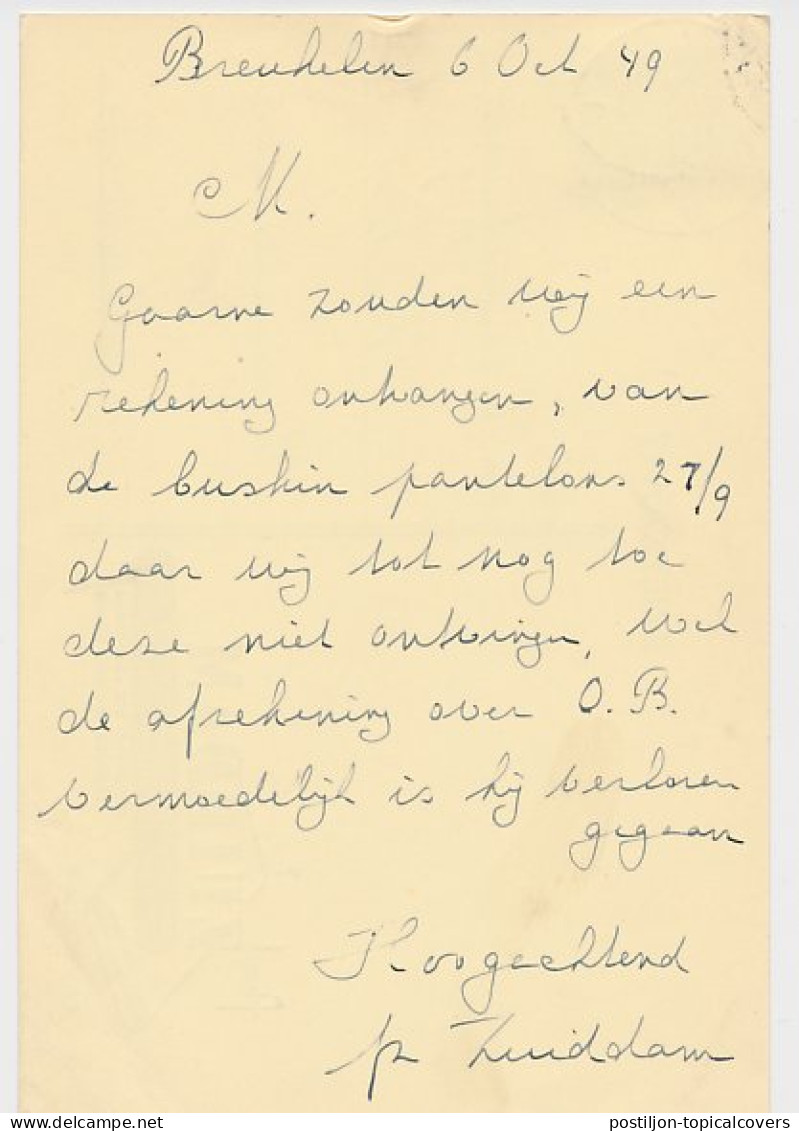 Breukelen 6 Oct 49
M.
Gaarne zouden wij een
rekening ontvangen, van
de buskin pantelons 27/9
daar wij tot nog toe
deze niet ontvingen, wel
de afrekening over O.B.
vermoedelijk is hij verloren
gegaan
Hoogachtend
Zuiddam
postiljon-topicalcovers